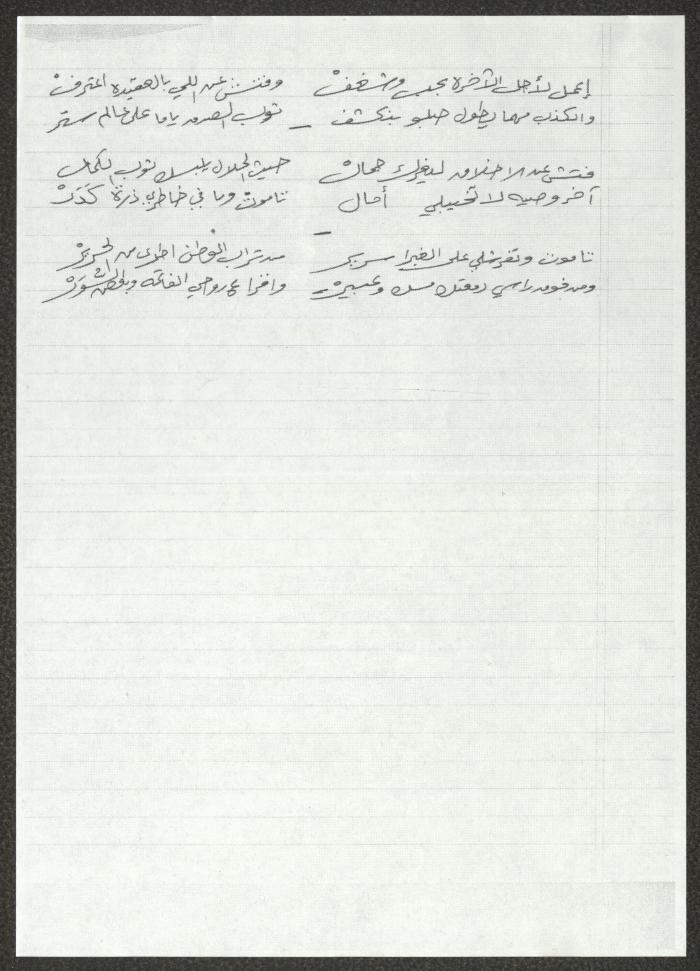 إعمل لأجل الآخرة بحب وشغفْ وفتش عن اللي بالعقيدة اعترفْ
والكذب مهما بطول حبلو بنكشف توب الصدق ياما على عالم ستر
فتش عن الاخلاق لغيرك جمالْ حيث الحلال يلبسك توب الكمال
آخر وصيه لا تخيبلي أمال تا موت وما في خاطري ذرة كَدَرْ
تا موت وتفرشلي على الغبرا سرير من تراب الوطن اطرى من الحريرْ
ومن فوق راسي دمعتك مسك وعبيرْ واقرا ع روحي الفاتحة وبعض